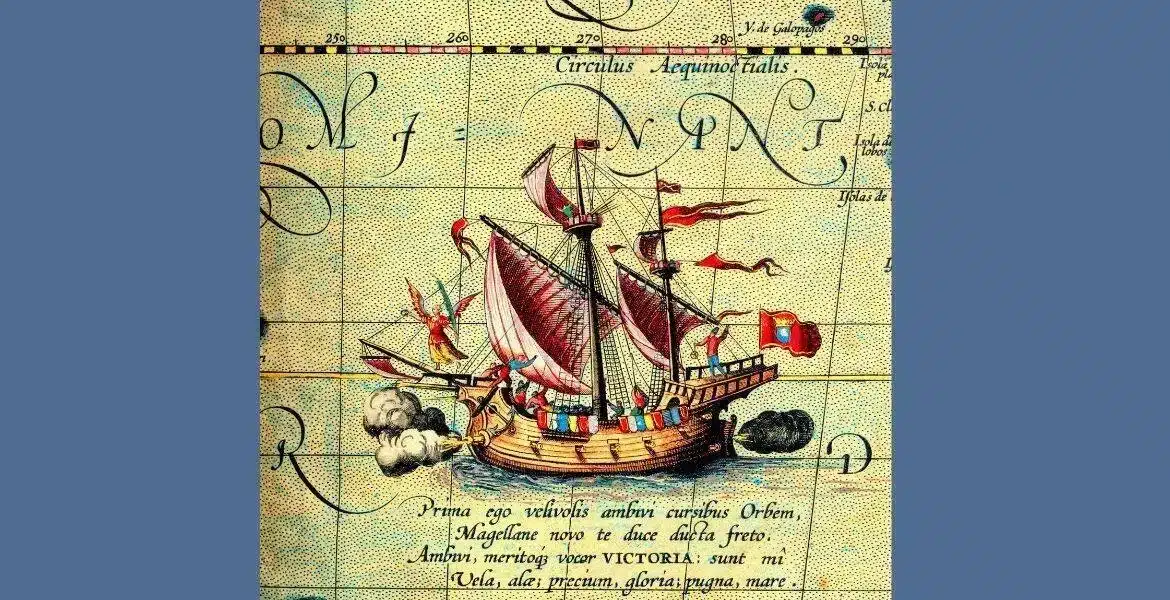 Y. de Galopagos
250 260 270 280 290
Circulus Aequinoctialis.
Isola
OMI = NANT,
S. Cl
Isola de
lobos
Isolas de
R D
Prima ego velivolis ambivi cursibus Orbem,
Magellane novo te duce ducta freto.
Ambivi, meritoq₃ vocor VICTORIA: sunt mî
Vela, alæ; precium, gloria; pugna, mare.